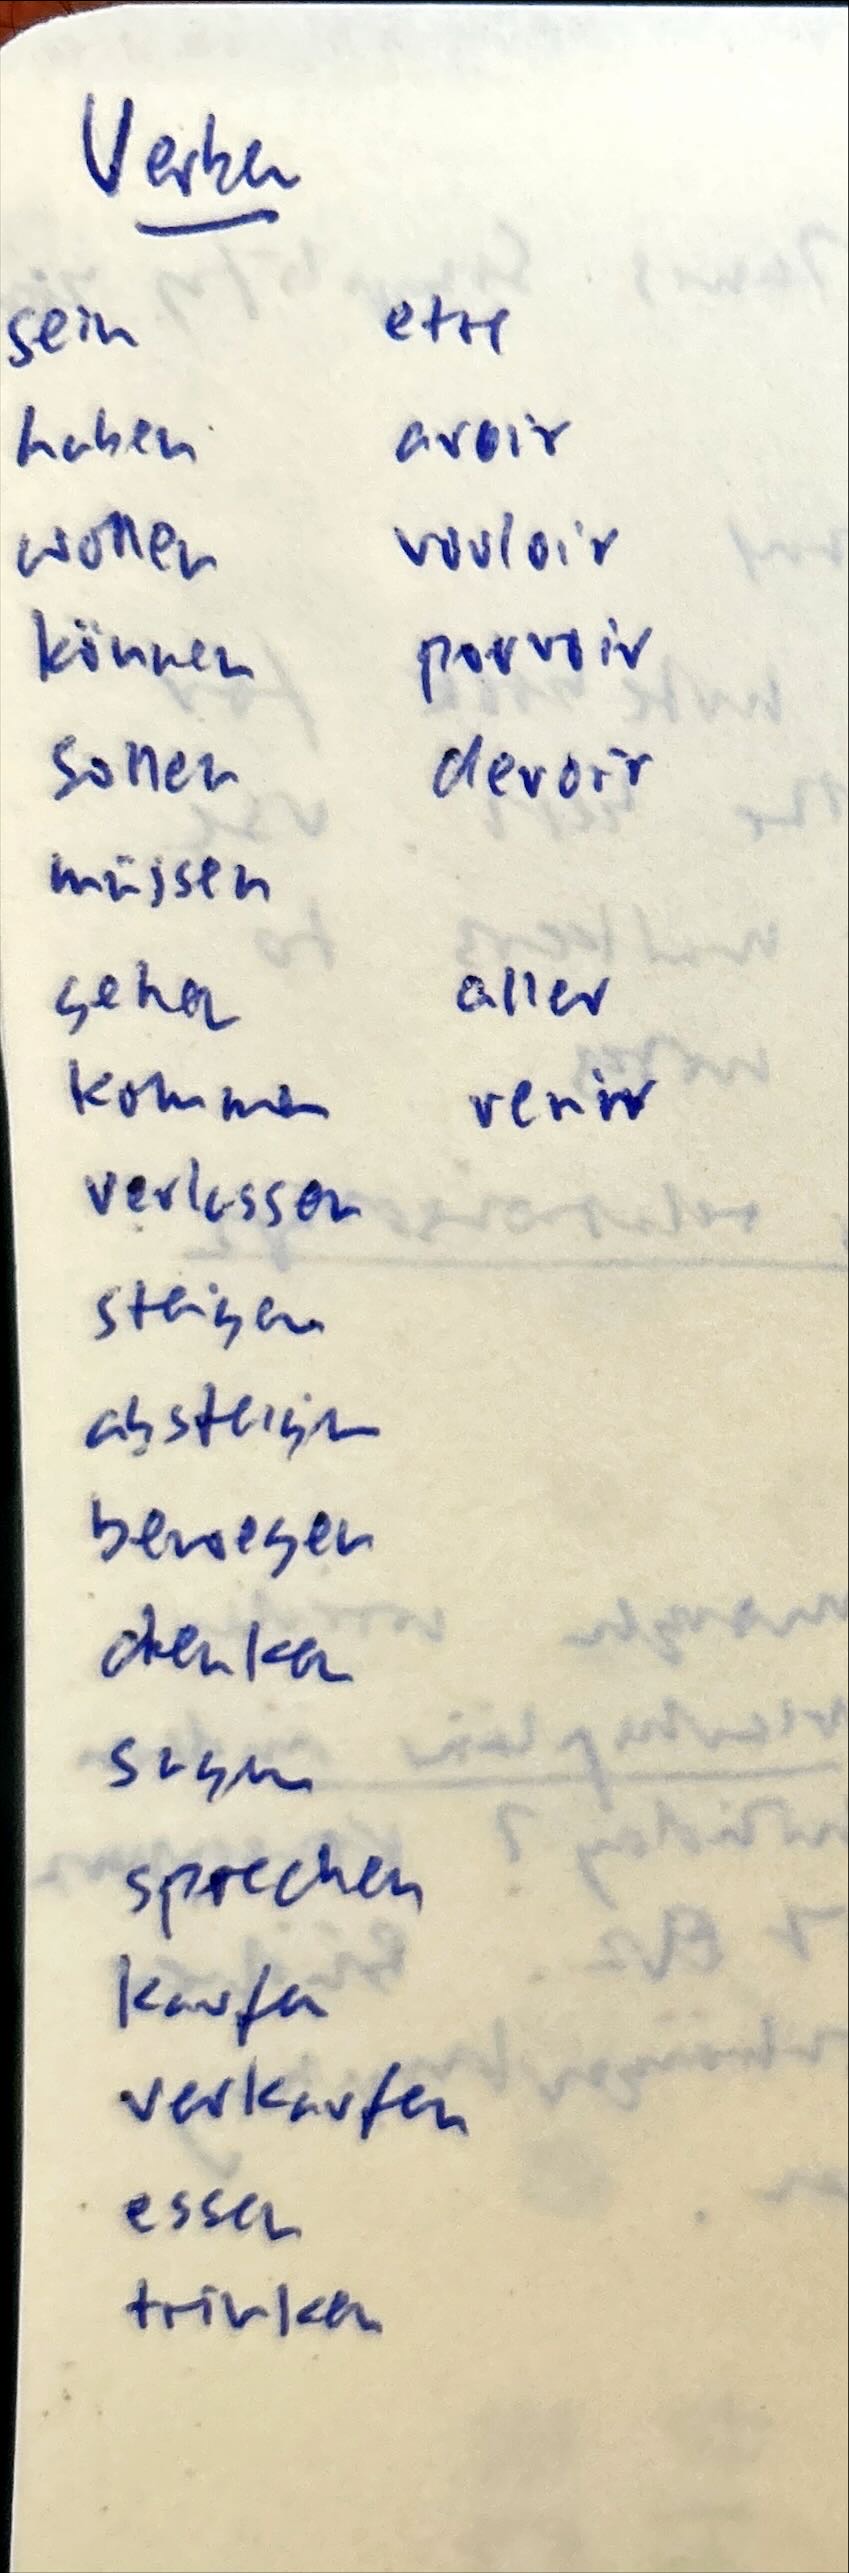 Verben
sein etre
haben avoir
wollen vouloir
können pouvoir
sollen devoir
müssen
gehen aller
kommen venir
verlassen
steigen
absteigen
bewegen
denken
sagen
sprechen
kaufen
verkaufen
essen
trinken